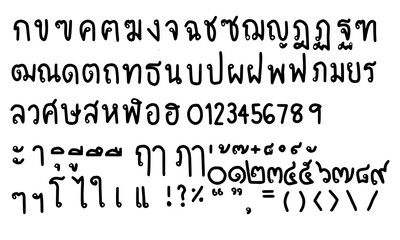 ก ข ฃ ค ฅ ฆ ง จ ฉ ช ซ ฌ ญ ฎ ฏ ฐ ฑ
ฒ ณ ด ต ถ ท ธ น บ ป ผ ฝ พ ฟ ภ ม ย ร
ล ว ศ ษ ส ห ฬ อ ฮ 0 1 2 3 4 5 6 7 8 9
ะ า ุ ิ ู ี ึ ื ฤา ภา ่ ้ ๊ ๋ ็ ์ ํ
๐ ๑ ๒ ๓ ๔ ๕ ๖ ๗ ๘ ๙
ๆ ฯ โ ไ ใ เ แ ! ? % “ ” , = ( ) < > \ /